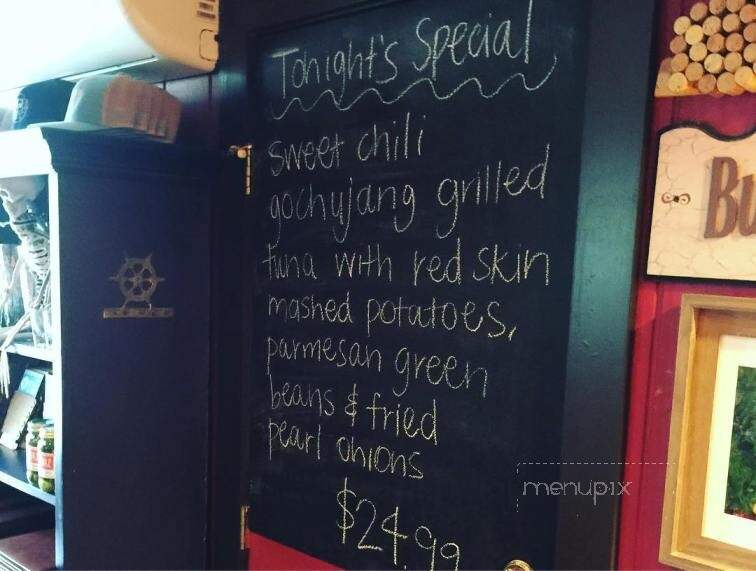 Tonight's Special
sweet chili
gochujang grilled
tuna with red skin
mashed potatoes,
parmesan green
beans & fried
pearl onions
$24.99
Bu
menupix